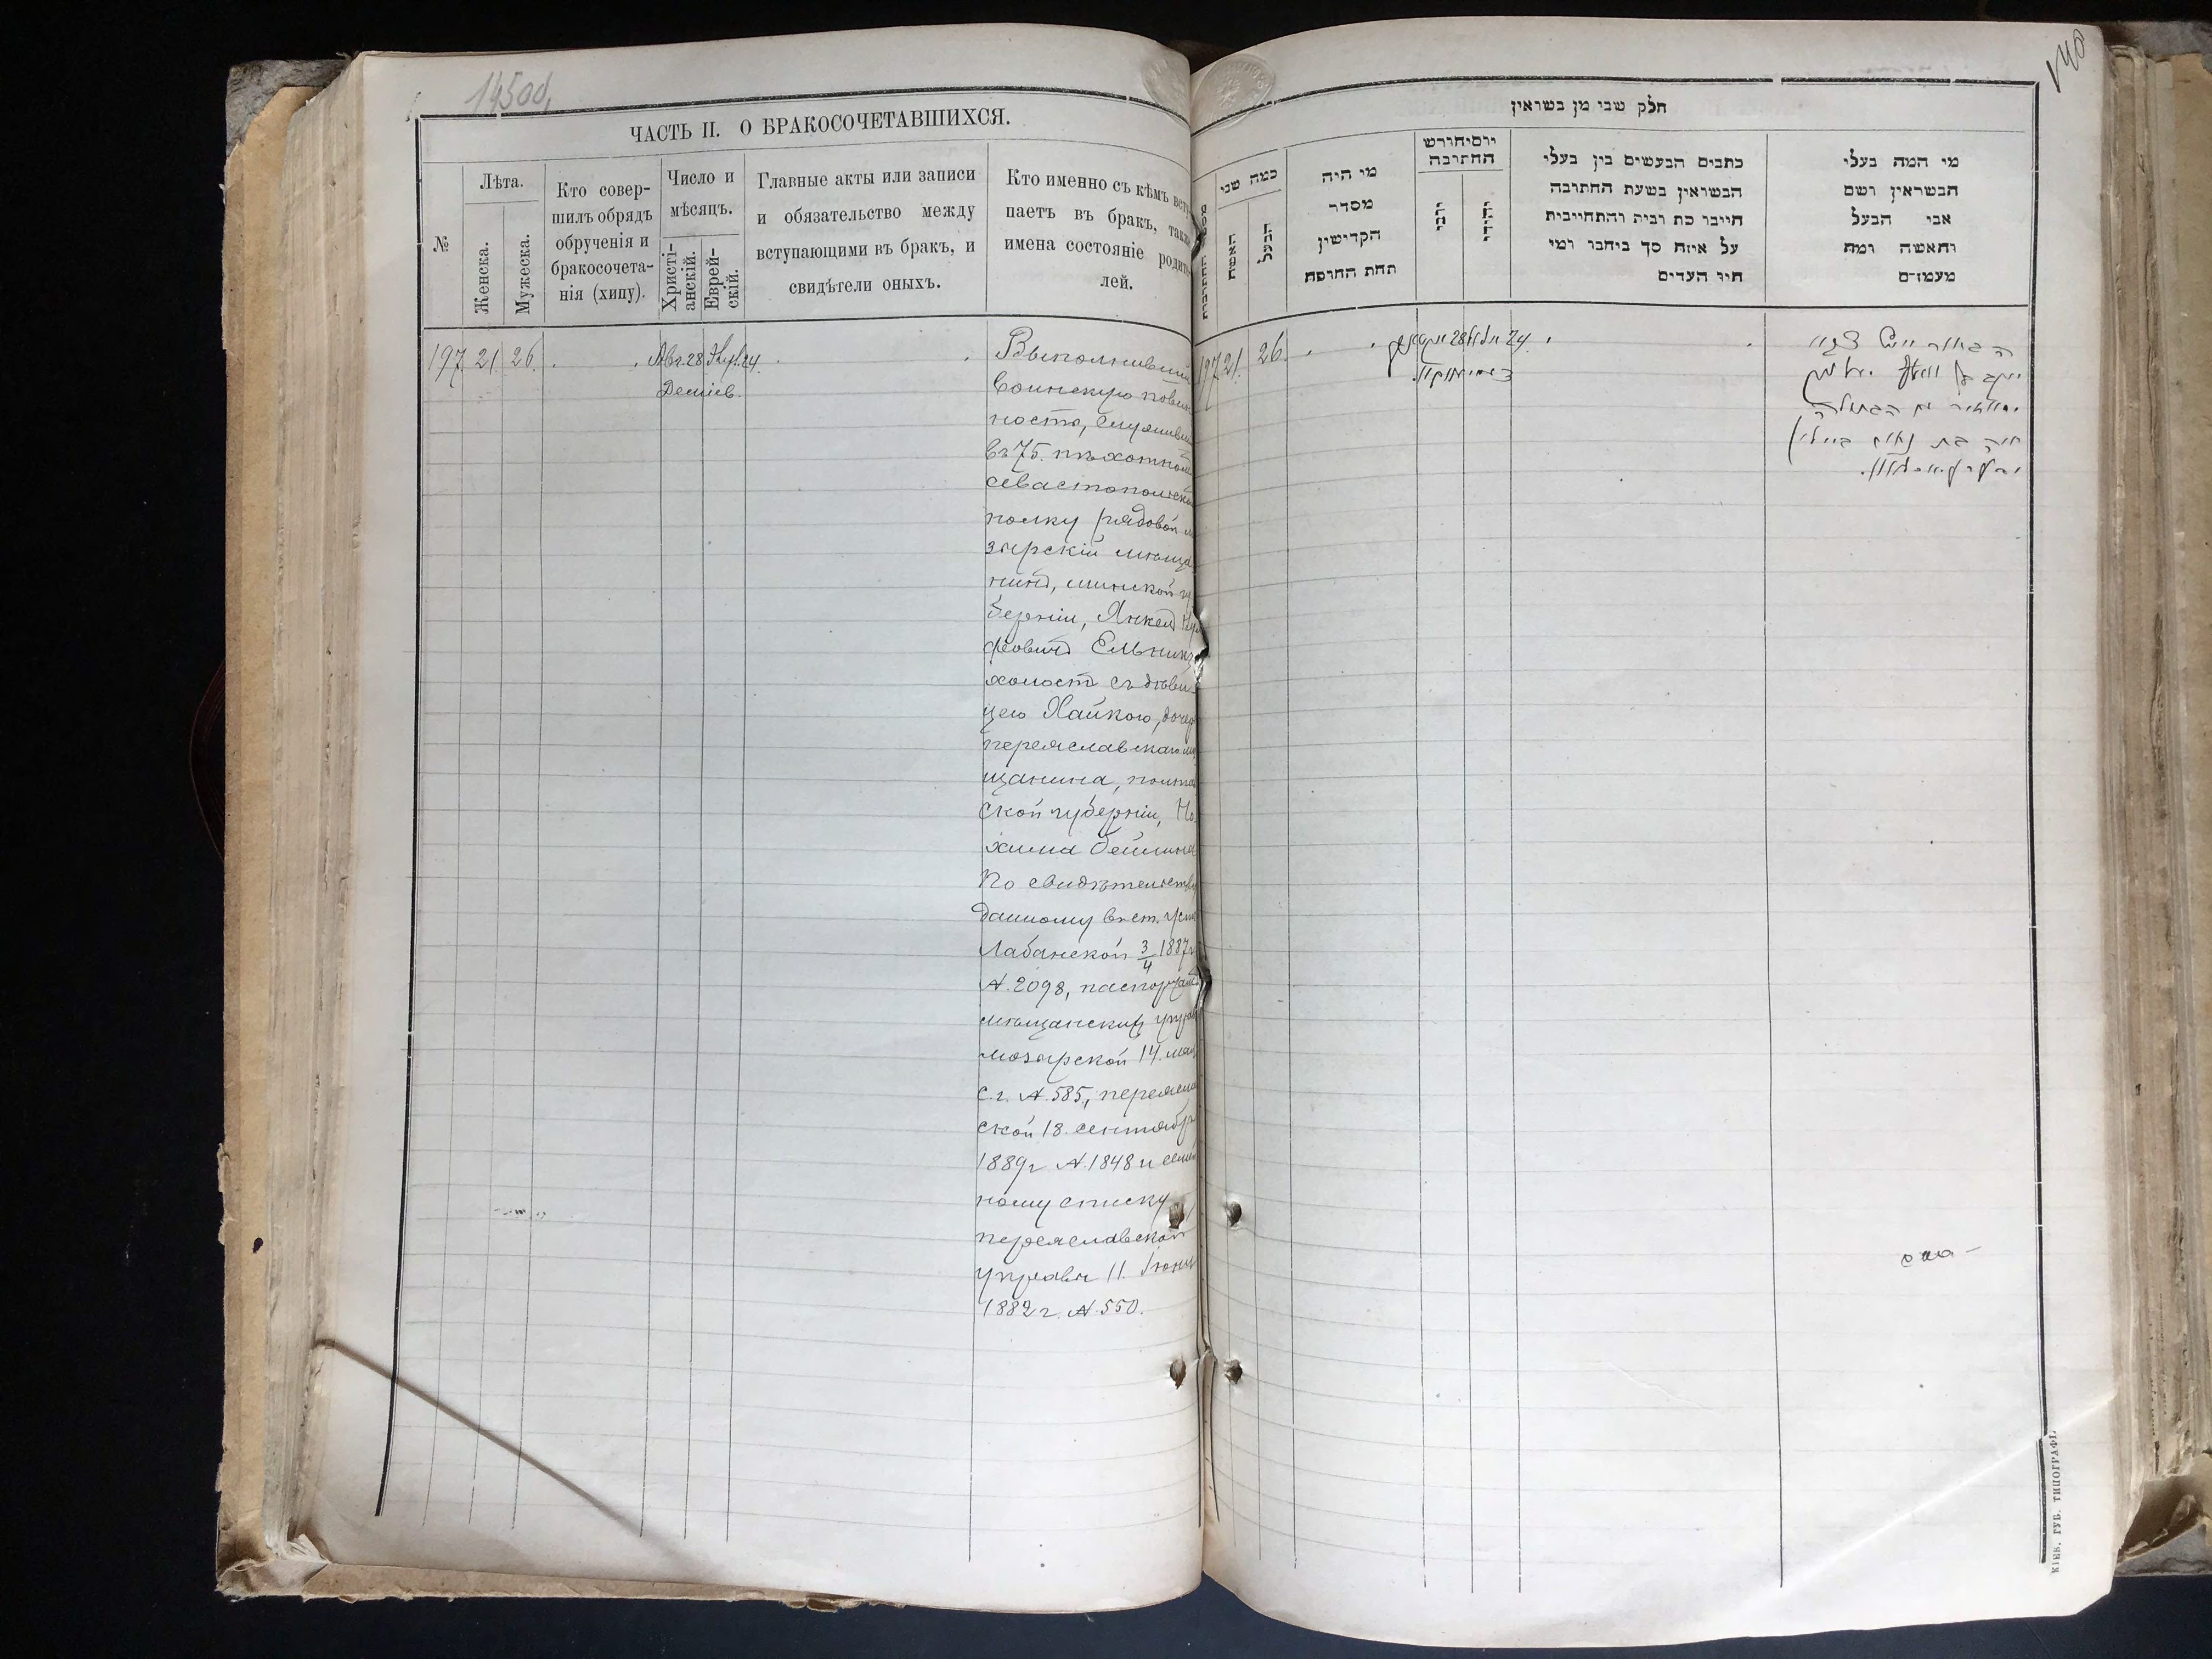 14500,
ЧАСТЬ II. О БРАКОСОЧЕТАВШИХСЯ.
№
Лѣта.
Женска.
Мужеска.
Кто совер-
шилъ обрядъ
обрученія и
бракосочета-
нія (хипу).
Число и
мѣсяцъ.
Христі-
анскій.
Еврей-
скій.
Главные акты или записи
и обязательство между
вступающими въ бракъ, и
свидѣтели оныхъ.
Кто именно съ кѣмъ всту-
паетъ въ бракъ, также
имена состояніе родите-
лей.
197. 21. 26. Авг. 28 24.
Деміев.
Выполнившій
воинскую повин
ность, служивш
въ 75. пѣхотном
Севастопольск
полку рядовой м
зырскій мѣща
нинъ, минской гу
берніи, Янкель
фовичъ Ельник,
холостъ съ дѣви-
цею Хайкою, дочер
переяславскаго мѣ
щанина, полтав
ской губерніи, Но
хима Бейлина
По свидѣтельству
данному въ ст. Усть
Лабанской 3/4 1887 г
№. 2098, паспортамъ
мѣщанскихъ управ
мозырской 14. мая
с. г. №. 585, переяслав
ской 18. сентябр
1889 г №. 1848 и семей
ному списку
переяславской
управы 11. Іюня
1882 г. №. 550.
140
חלק שני מן נשואין
מספר החתונות
כמה שני
האשה
הבעל
מי היה
מסדר
הקדישין
תחת החופה
יום וחודש
החתונה
יוני
יהודי
כתבים הנעשים בין בעלי
הנשואין בשעת החתונה
חייבו כת רבית והתחייבית
על איזה סך ביחבו ומי
חיו העדים
מי המה בעלי
הנשואין ושם
אבי הבעל
והאשה ומה
מעמדם
197 21. 26. 28 24.
חיה בת נחום ביילין
КІЕВ. ГУБ. ТИПОГРАФІ.